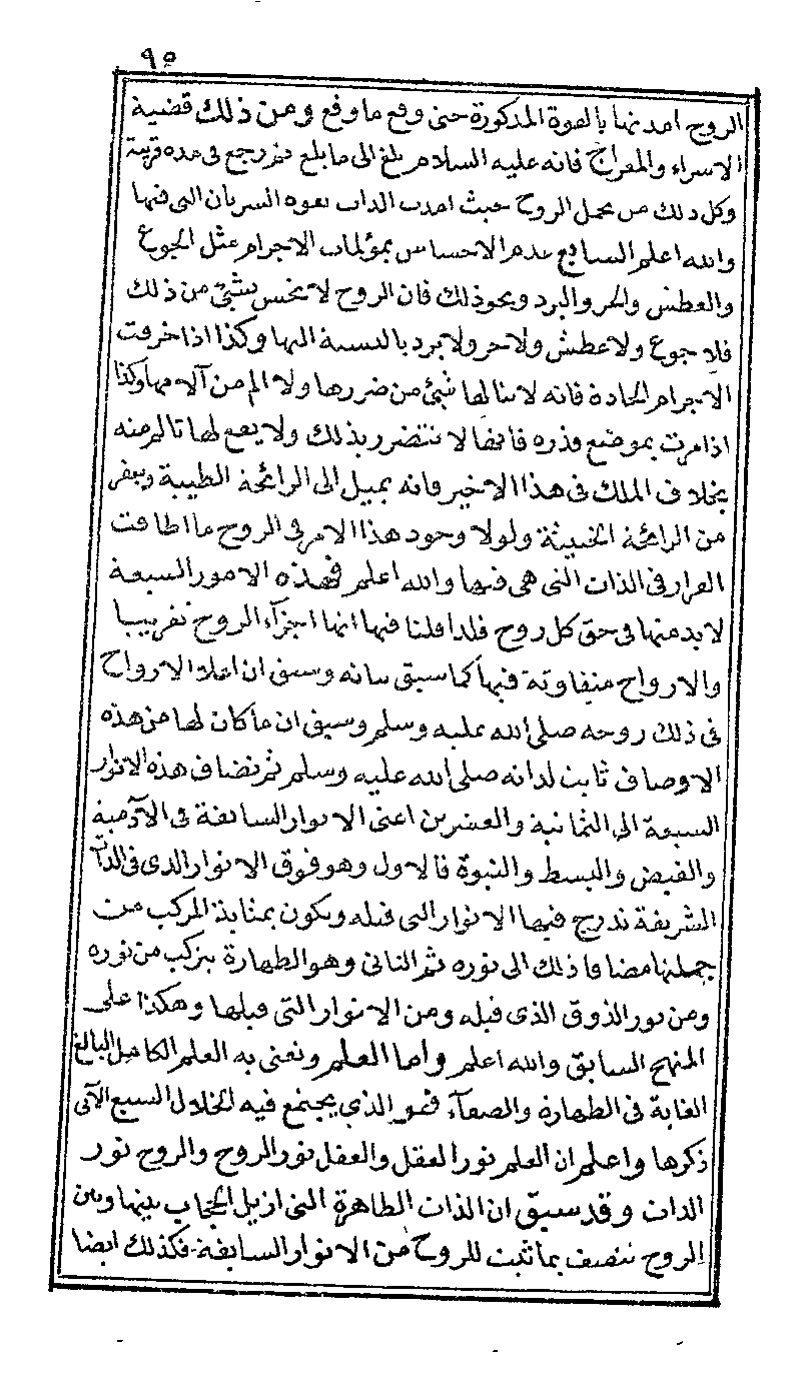 ٩٥
الروح امدتها بالقوة المذكورة حتى وقع ما وقع ومن ذلك قضية
الاسراء والمعراج فانه عليه السلام بلغ الى ما بلغ ثم رجع فى مدة قريبة
وكل ذلك من عمل الروح حيث امدت الذات بقوة السريان التى فيها
والله اعلم السابع عدم الاحساس بمؤلمات الاجرام مثل الجوع
والعطش والحر والبرد ونحو ذلك فان الروح لا تحس بشئ من ذلك
فلا جوع ولا عطش ولا حر ولا برد بالنسبة اليها وكذا اذا خرقت
الاجرام الحادة فانه لا ينالها شئ من ضررها ولا الم من آلامها وكذا
اذا مرت بموضع قذره فانها لا تتضرر بذلك ولا يقع لها تالم منه
بخلاف الملك فى هذا الاخير فانه يميل الى الرائحة الطيبة وينفر
من الرائحة الخبيثة ولولا وجود هذا الامر فى الروح ما اطاقت
القرار فى الذات التى هى فيها والله اعلم فهذه الامور السبعة
لابد منها فى حق كل روح فلذا قلنا فيها انها اجزآء الروح تقريبا
والارواح متفاوتة فيها كما سبق بيانه وسبق ان اعلا الارواح
فى ذلك روحه صلى الله عليه وسلم وسبق ان ما كان لها من هذه
الاوصاف ثابت لذاته صلى الله عليه وسلم ثم تضاف هذه الانوار
السبعة الى الثمانية والعشرين اعنى الانوار السابقة فى الآدمية
والقبض والبسط والنبوة فالاول وهو فوق الانوار الذى فى الذات
الشريفة تدرج فيها الانوار التى قبله ويكون بمثابة المركب من
جملتها مضافا ذلك الى نوره ثم الثانى وهو الطهارة يتركب من نوره
ومن نور الذوق الذى قبله ومن الانوار التى قبلها وهكذا على
المنهج السابق والله اعلم واما العلم ونعنى به العلم الكامل البالغ
الغاية فى الطهارة والصفآء فهو الذى يجتمع فيه الخلال السبع الآتى
ذكرها واعلم ان العلم نور العقل والعقل نور الروح والروح نور
الذات وقد سبق ان الذات الطاهرة التى ازيل الحجاب بينها وبين
الروح تتصف بما ثبت للروح من الانوار السابقة فكذلك ايضا